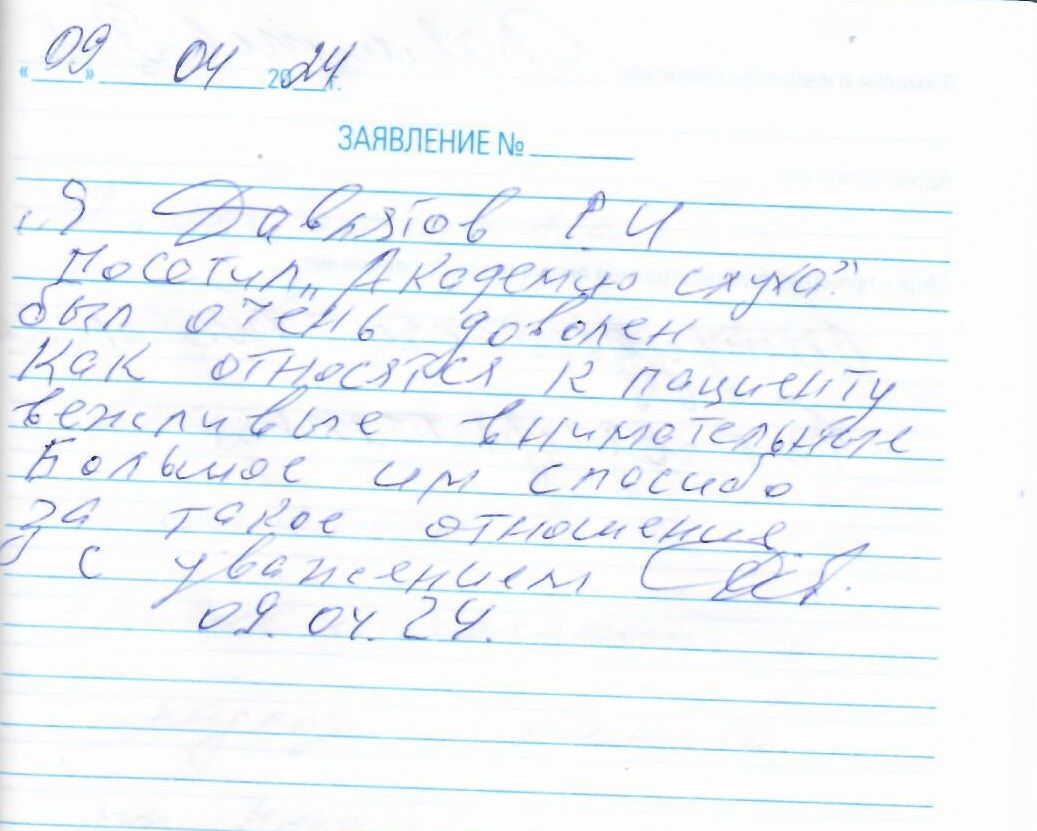 «09» 04 2024г.
ЗАЯВЛЕНИЕ №
Я Давлятов Р.И
Посетил „Академию слуха"
был очень доволен
Как относятся к пациенту
вежливые внимательные
Большое им спосибо
за такое отношения.
с уважением
09.04.24.